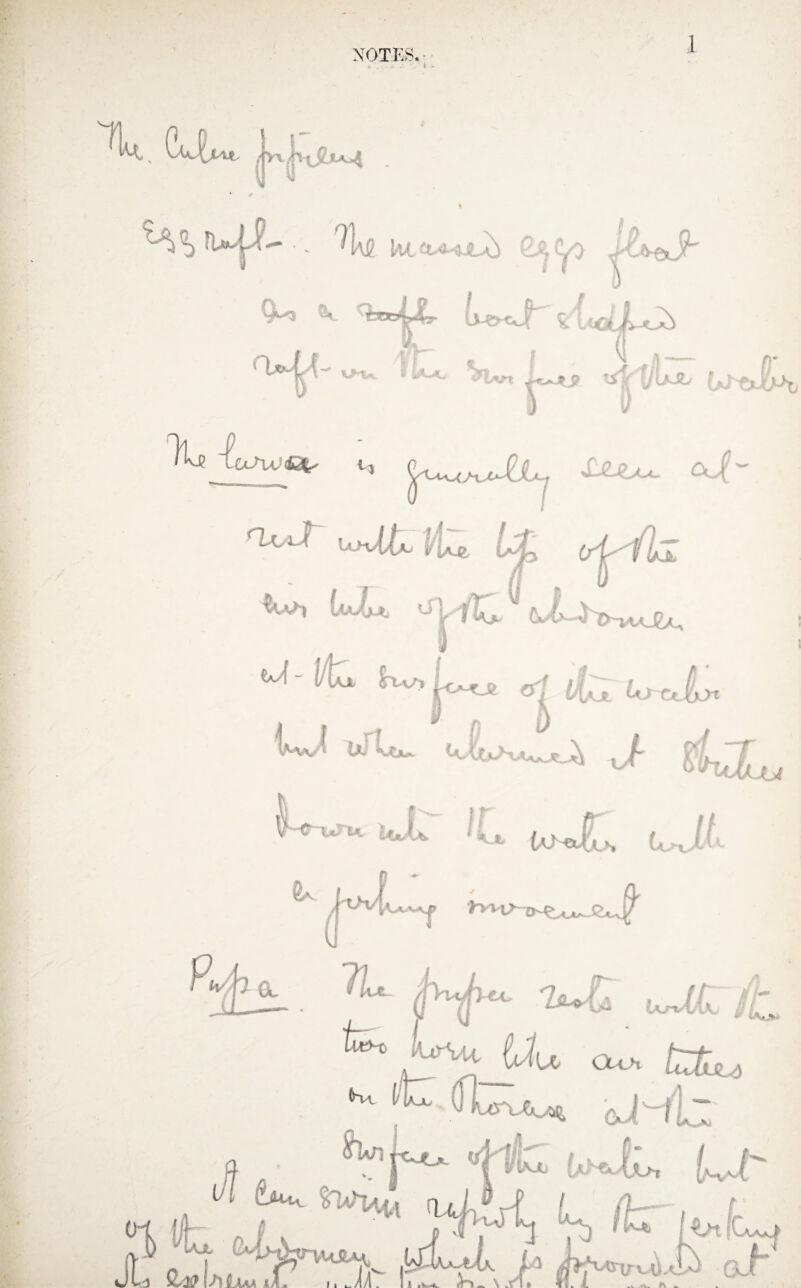 NOTES.
1
The Culex pipiens
Egg Raft - . The massed eggs float
as a raft boat shaped
raft on the surface of the water
The larvae is generally seen at
rest with the tip of the
air tube of the abdomen
at the surface of the water
but when alarmed it strikes
down into the water with
a jerking movement
Pupa . The pupa rests with the
two horn like air tubes
on the Thorax at the
surface of the water but
it can swim rapidly by the jerking
of the abdomen which is provided at
its extremity with two